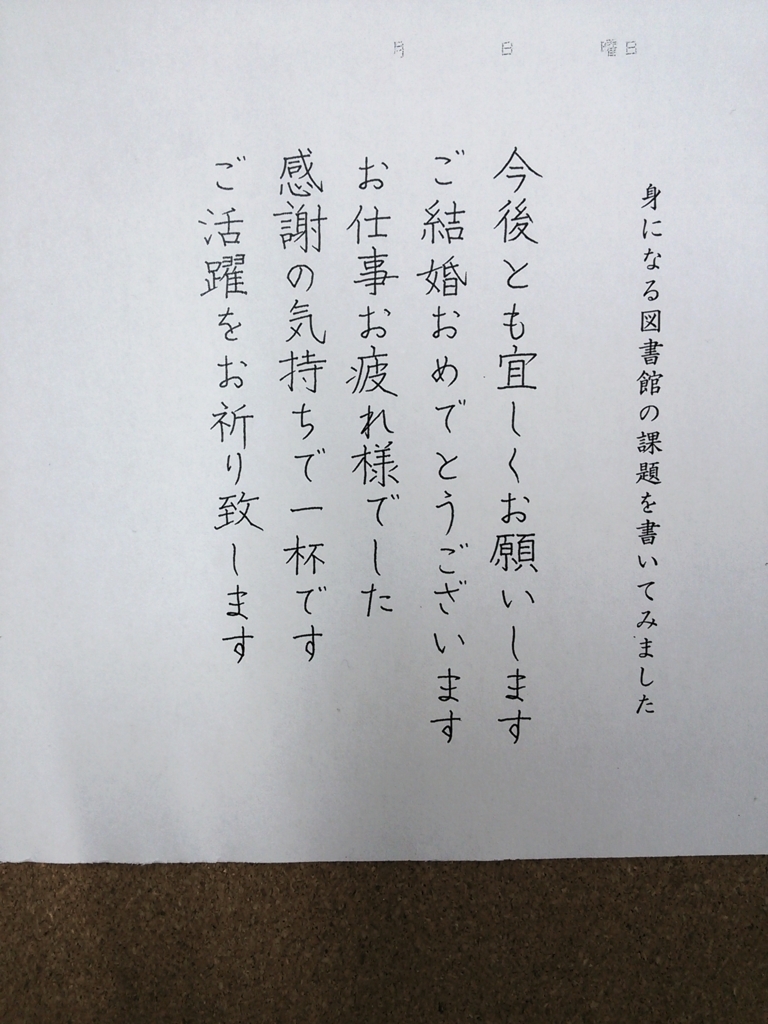 月 日 曜日
身になる図書館の課題を書いてみました
今後とも宜しくお願いします
ご結婚おめでとうございます
お仕事お疲れ様でした
感謝の気持ちで一杯です
ご活躍をお祈り致します